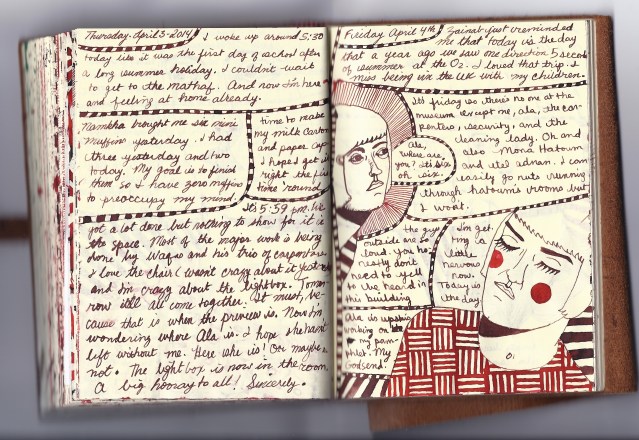 Thursday-April 3-2014
I woke up around 5:30
today like it was the first day of school after
a long summer holiday. I couldn't wait
to get to the mathaf. And now I'm here
and feeling at home already.
Namkha brought me six mini
muffins yesterday. I had
three yesterday and two
today. My goal is to finish
them so I have zero muffins
to preoccupy my mind.
time to make
my milk carton
and paper cup
I hope I get it
right the first
time 'round.
It's 5:59 pm. We
got a lot done but nothing to show for it is
the space. Most of the major work is being
done by Wagas and his trio of carpenters.
I love the chair (wasn't crazy about it yester
and I'm crazy about the lightbox. Tomor-
row it'll all come together. It must, be-
cause that is when the preview is. Now I'm
wondering where Ala is. I hope she hasn't
left without me. Here she is! Or maybe
not. The light box is now in the room.
A big hooray to all! Sincerely.
Friday April 4th
Zainab just reminded
me that today is the day
that a year ago we saw one direction 5 seconds
of summer at the O2. I loved that trip. I
miss being in the UK with my children.
It's friday so there's no one at the
museum except me, ala, the car-
penters, security, and the
cleaning lady. Oh and
also - Mona Hatoum
and etel adnan. I can
easily go nuts running
through hatoum's rooms but
I won't.
Ala,
where are
you? It's six
oh six.
the guys
outside are so
loud. You ho-
nestly don't
need to yell
to be heard in
this building
I'm get-
ting a
little
nervous
now.
Today is
the day
Ala is upstairs
working on
my pam-
phlet. My
Godsend.